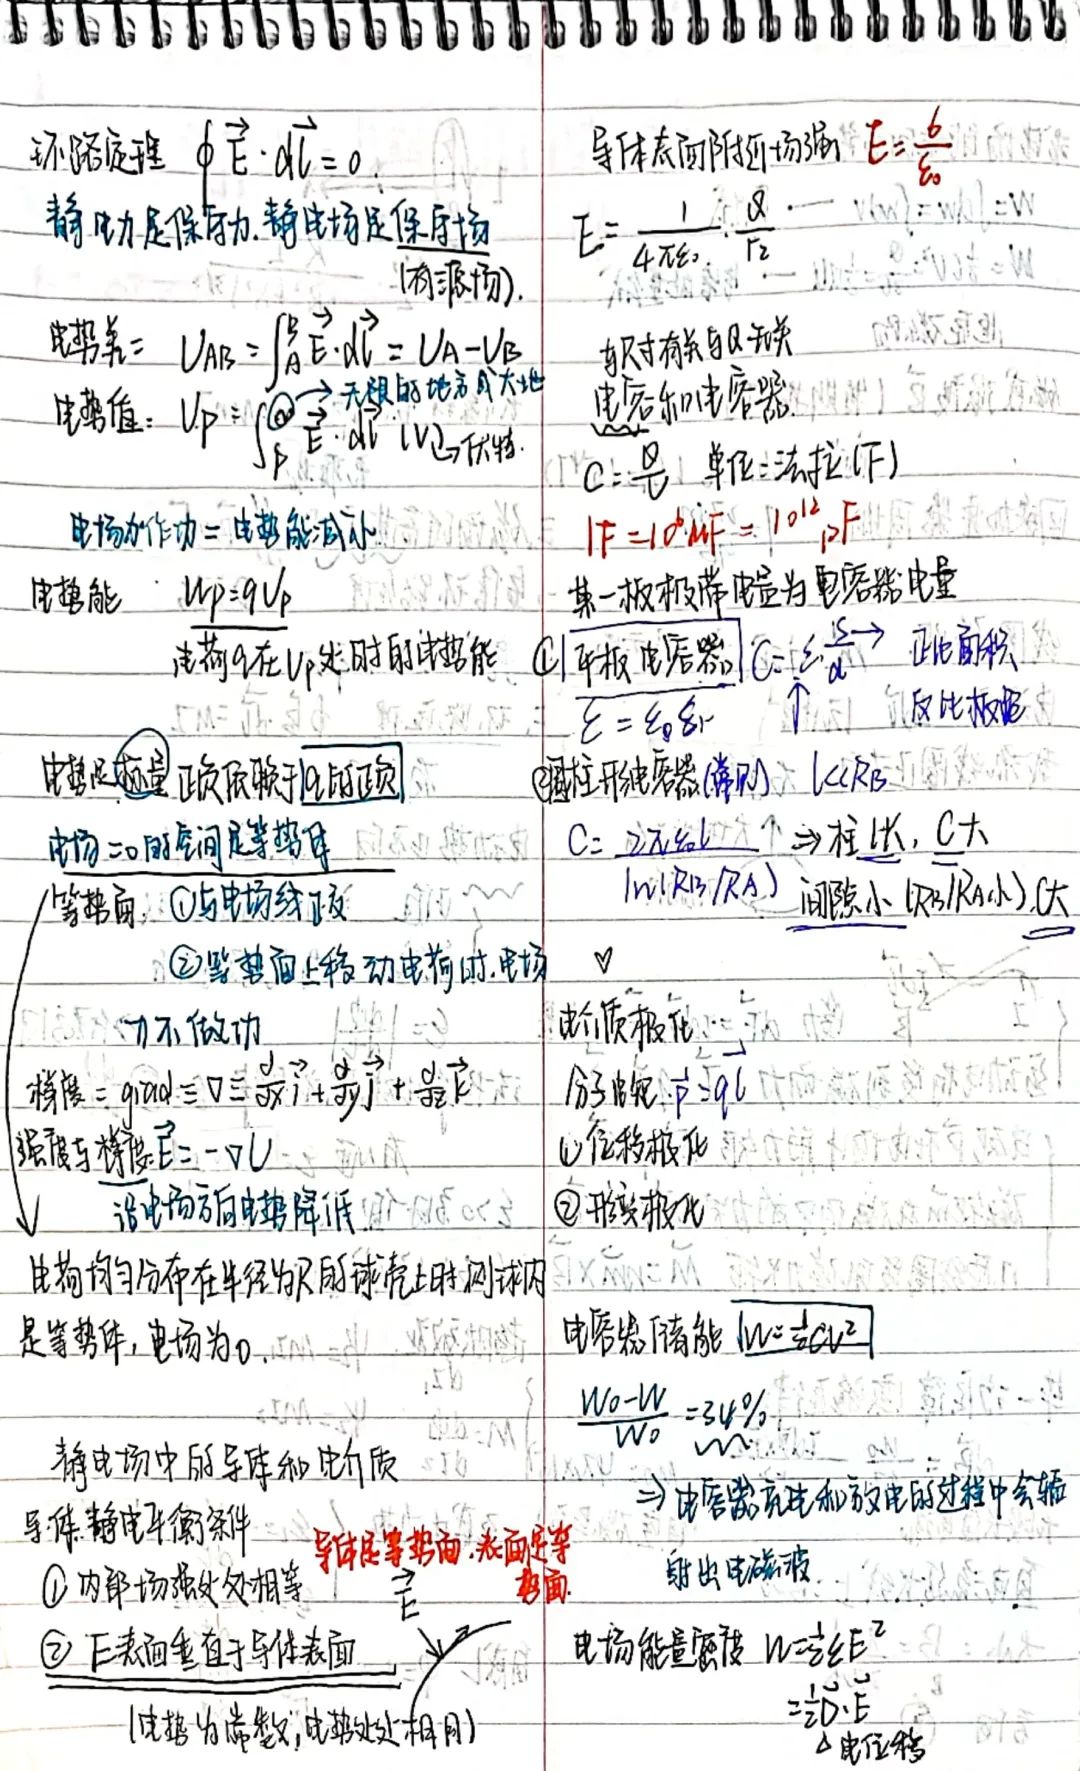 环路定理 ∮E⃗·dl⃗=0.
静电力是保守力.静电场是保守场
(有源场).
电势差: U_AB=∫_A^B E⃗·dl⃗=U_A-U_B
电势值: U_P=∫_P^∞ E⃗·dl⃗ (V)→伏特.
→无限的地方或大地
电场力作功=电势能减小
电势能 W_P=qU_P
电荷q在U_P处时的电势能
电势是标量 正负依赖于q的正负
电场=0的空间是等势体
等势面: ①与电场线正交
②等势面上移动电荷时.电场
力不做功
梯度=grad≡∇≡d/dx i⃗+d/dy j⃗+d/dz k⃗
强度与梯度:E⃗=-∇U
沿电场方向电势降低.
电荷均匀分布在半径为R的球壳上时.则球内
是等势体,电场为0.
静电场中的导体和电介质
导体静电平衡条件
导体是等势面.表面是等
势面.
①内部场强处处相等
E⃗
②E表面垂直于导体表面
(电势为常数;电势处处相同)
导体表面附近场强 E=σ/ε₀
E=1/4πε₀·Q/r²
与尺寸有关与Q无关
电容和电容器.
C=Q/U 单位:法拉(F)
1F=10⁶μF=10¹²pF
某一板极带电量为电容器电量
①平板电容器 C=ε·S/d → 正比面积
反比板距
ε=ε₀εr
②圆柱形电容器(常见) l<<R_B
C=2πε₀l/ln(R_B/R_A) ↑ ⇒柱l长, C大
间隙小(R_B/R_A小).C大
♡
电介质极化
分子电矩 p⃗=ql⃗
①位移极化
②形变极化
电容器储能 W=½CU²
W₀-W/W₀=34%
⇒电容器充电和放电的过程中会辐
射出电磁波.
电场能量密度 W=½εE²
=½D⃗·E⃗
△电位移